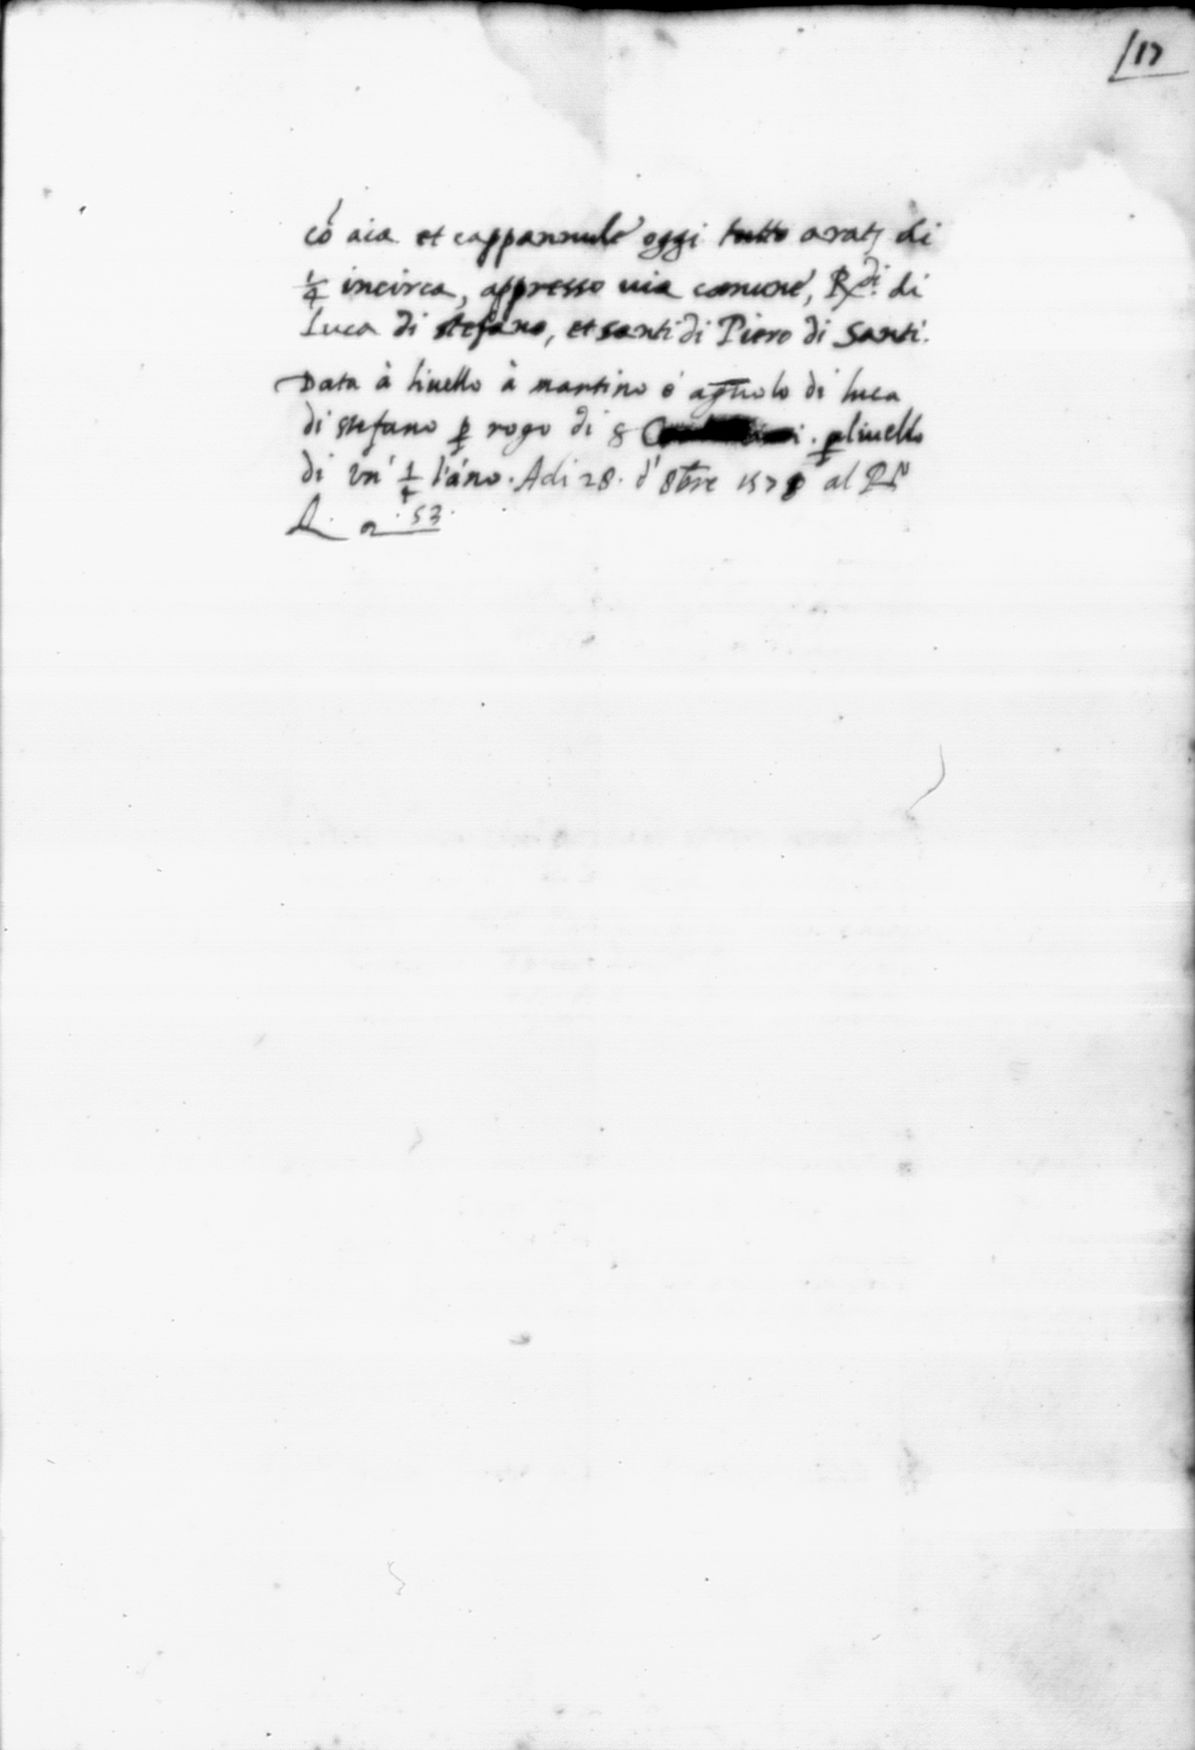 17
cõ aia et cappannule oggi tutto arat. di
1/4 incirca, appresso uia comune, R.di di
Luca di stefano, et santi di Piero di Santi.
Data à liuello à martino é agnolo di luca
di stefano p rogo di s . p liuello
di un' 1/4 l'año. Adi 28. d' 8bre 157 al
A. 53.